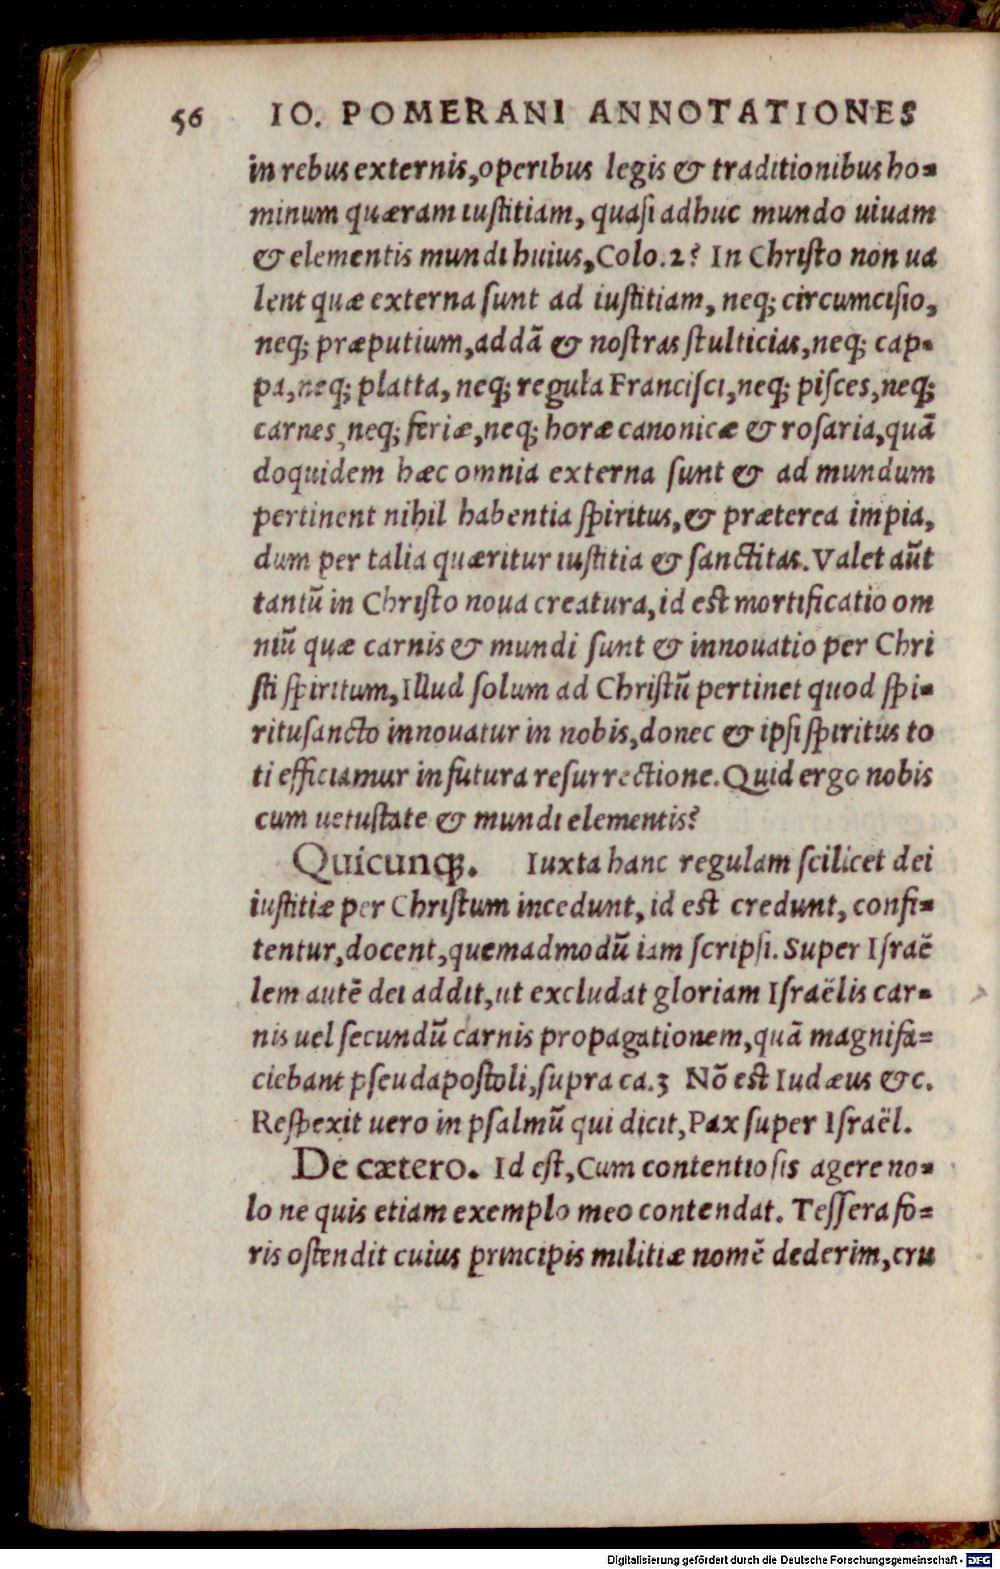 56 IO. POMERANI ANNOTATIONES
in rebus externis, operibus legis & traditionibus ho-
minum quæram iustitiam, quasi adhuc mundo uiuam
& elementis mundi huius, Colo.2? In Christo non ua
lent quæ externa sunt ad iustitiam, neq; circumcisio,
neq; præputium, addã & nostras stulticias, neq; cap-
pa, neq; platta, neq; regula Francisci, neq; pisces, neq;
carnes, neq; feriæ, neq; horæ canonicæ & rosaria, quã
doquidem hæc omnia externa sunt & ad mundum
pertinent nihil habentia spiritus, & præterea impia,
dum per talia quæritur iustitia & sanctitas. Valet aũt
tantũ in Christo noua creatura, id est mortificatio om
niũ quæ carnis & mundi sunt & innouatio per Chri
sti spiritum, Illud solum ad Christũ pertinet quod spi-
ritusancto innouatur in nobis, donec & ipsi spiritus to
ti efficiamur in futura resurrectione. Quid ergo nobis
cum uetustate & mundi elementis?
Quicunq;. Iuxta hanc regulam scilicet dei
iustitiæ per Christum incedunt, id est credunt, confi-
tentur, docent, quemadmodũ iam scripsi. Super Israẽ
lem autẽ dei addit, ut excludat gloriam Israëlis car-
nis uel secundũ carnis propagationem, quã magnifa-
ciebant pseudapostoli, supra ca.3 Nõ est Iudæus &c.
Respexit uero in psalmũ qui dicit, Pax super Israël.
De cætero. Id est, Cum contentiosis agere no-
lo ne quis etiam exemplo meo contendat. Tessera fo-
ris ostendit cuius principis militiæ nomẽ dederim, cru
Digitalisierung gefördert durch die Deutsche Forschungsgemeinschaft - DFG